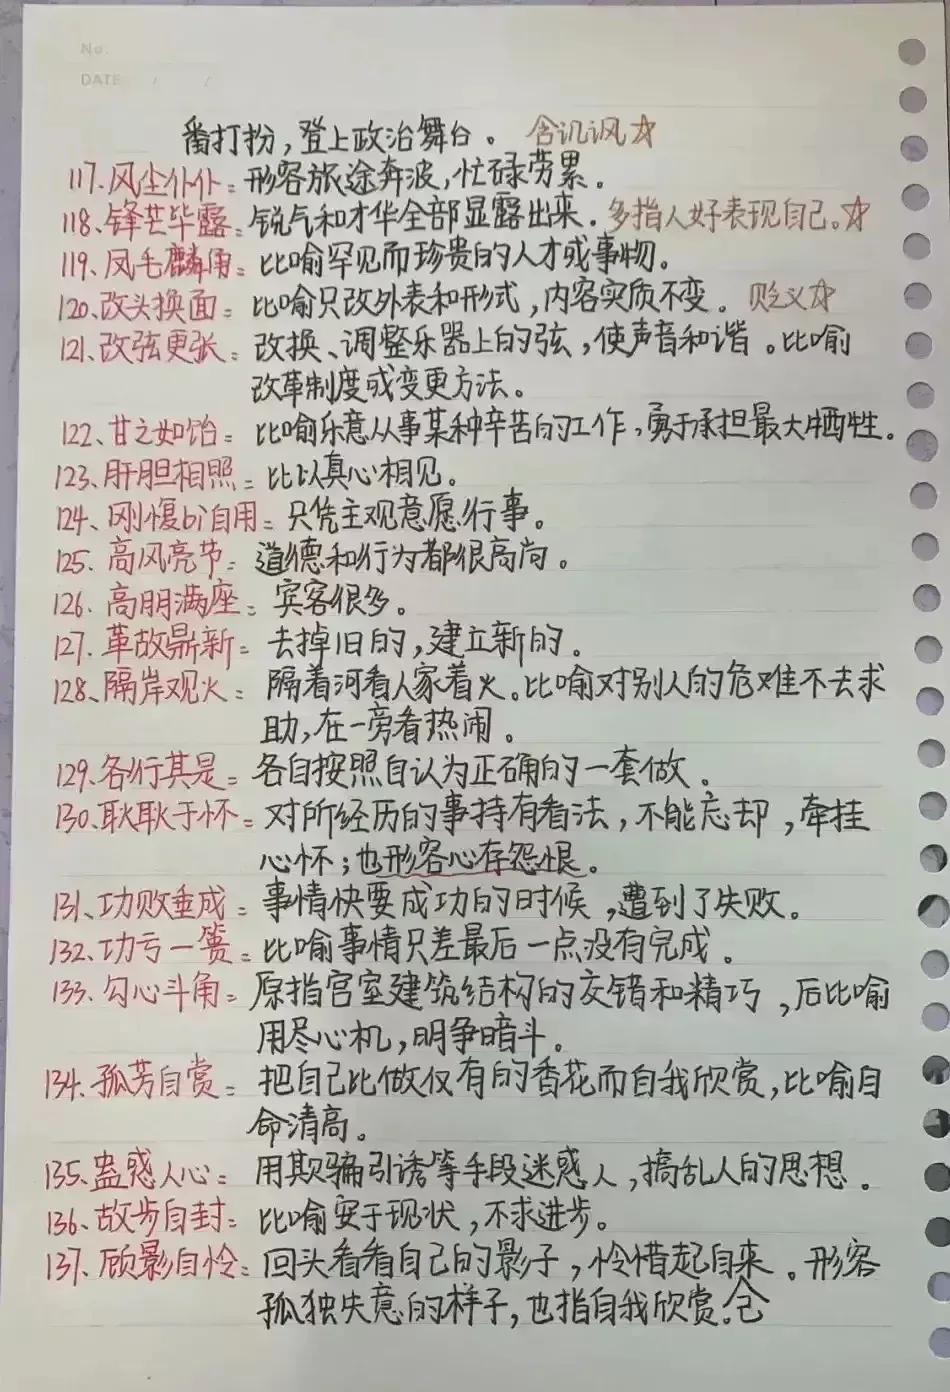 No.
DATE / /
番打扮，登上政治舞台。 含讥讽☆
117.风尘仆仆：形容旅途奔波，忙碌劳累。
118.锋芒毕露：锐气和才华全部显露出来.多指人好表现自己。☆
119、凤毛麟角：比喻罕见而珍贵的人才或事物。
120、改头换面：比喻只改外表和形式，内容实质不变。 贬义☆
121、改弦更张：改换、调整乐器上的弦，使声音和谐。比喻
改革制度或变更方法。
122、甘之如饴：比喻乐意从事某种辛苦的工作，勇于承担最大牺牲。
123、肝胆相照：比以真心相见。
124、刚愎bì自用：只凭主观意愿行事。
125. 高风亮节：道德和行为都很高尚。
126. 高朋满座：宾客很多。
127、革故鼎新：去掉旧的，建立新的。
128、隔岸观火：隔着河看人家着火。比喻对别人的危难不去求
助，在一旁看热闹。
129.各行其是：各自按照自认为正确的一套做。
130.耿耿于怀：对所经历的事持有看法，不能忘却，牵挂
心怀；也形容心存怨恨。
131、功败垂成：事情快要成功的时候，遭到了失败。
132、功亏一篑：比喻事情只差最后一点没有完成。
133、勾心斗角：原指宫室建筑结构的交错和精巧，后比喻
用尽心机，明争暗斗。
134.孤芳自赏：把自己比做仅有的香花而自我欣赏，比喻自
命清高。
135.蛊惑人心：用欺骗引诱等手段迷惑人，搞乱人的思想。
136、故步自封：比喻安于现状，不求进步。
137、顾影自怜：回头看看自己的影子，怜惜起自来。形容
孤独失意的样子，也指自我欣赏。含